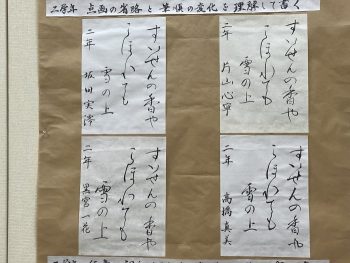 二学年 点画の省略と筆順の変化を理解して書く
すいせんの香や
こぼれても
雪の上
二年 坂田実澪
すいせんの香や
こぼれても
雪の上
二年 片山心寧
すいせんの香や
こぼれても
雪の上
二年 黒宮一花
すいせんの香や
こぼれても
雪の上
二年 高橋真美